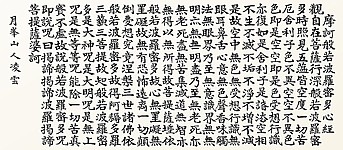 摩訶般若波羅蜜多心經
觀自在菩薩行深般若波羅蜜
多時照見五蘊皆空度一切苦
厄舍利子色不異空空不異色
色即是空空即是色受想行識
亦復如是舍利子是諸法空相
不生不滅不垢不淨不增不減
是故空中無色無受想行識無
眼耳鼻舌身意無色聲香味觸
法無眼界乃至無意識界無無
明亦無無明盡乃至無老死亦
無老死盡無苦集滅道無智亦
無得以無所得故菩提薩埵依
般若波羅蜜多故心無罣礙無
罣礙故無有恐怖遠離一切顛
倒夢想究竟涅槃三世諸佛依
般若波羅蜜多故得阿耨多羅
三藐三菩提故知般若波羅蜜
多是大神咒是大明咒是無上
咒是無等等咒能除一切苦真
實不虛故說般若波羅蜜多咒
即說咒曰揭諦揭諦波羅揭諦
菩提薩婆訶
月峯山人